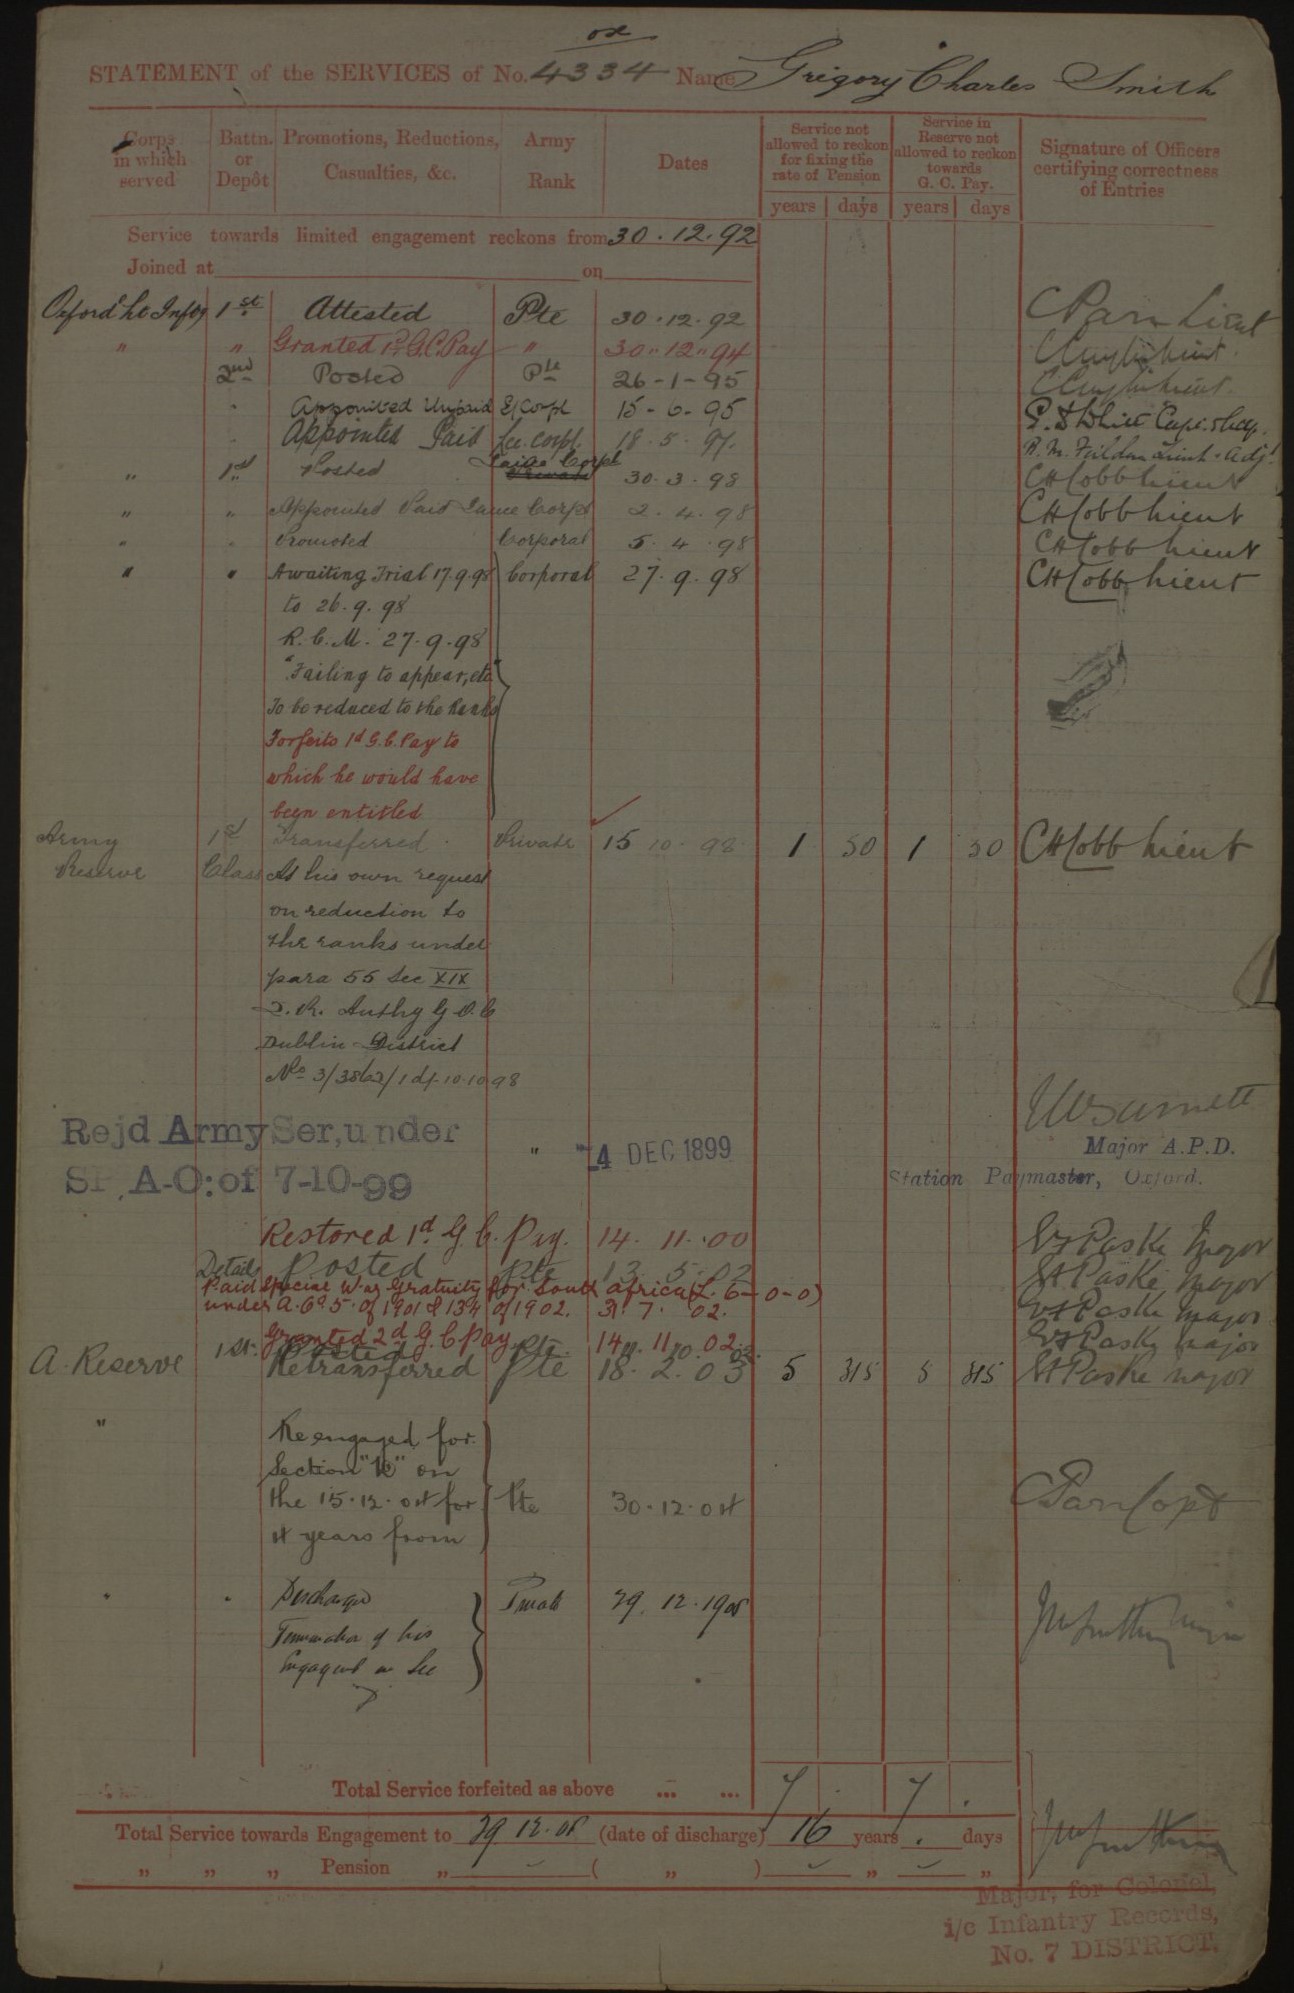 ox
STATEMENT of the SERVICES of No. 4334 Name Gregory Charles Smith
Corps in which served
Battn. or Depôt
Promotions, Reductions, Casualties, &c.
Army Rank
Dates
Service not allowed to reckon for fixing the rate of Pension
years days
Service in Reserve not allowed to reckon towards G. C. Pay.
years days
Signature of Officers certifying correctness of Entries
Service towards limited engagement reckons from 30.12.92
Joined at on
Oxford Lt Infy 1st Attested Pte 30.12.92 Lieut
" " Granted 1d G.C. Pay " 30" 12" 94 Lieut
2nd Posted Pte 26-1-95 Lieut
Appointed Unpaid L/Corpl 15-6-95 White Capt
Appointed Paid Lce. Corpl. 18.5.97. Lieut Adjt
" 1st Posted Lance Corpl Private 30.3.98 CH Cobb Lieut
" " Appointed Paid Lance Corpl 2.4.98 CH Cobb Lieut
" " Promoted Corporal 5.4.98 CH Cobb Lieut
" " Awaiting Trial 17.9.98 Corporal 27.9.98 CH Cobb Lieut
to 26.9.98
R.C.M. 27.9.98
"Failing to appear, etc"
To be reduced to the Ranks
Forfeits 1d G.C. Pay to
which he would have
been entitled
Army 1st Transferred Private 15 10 98 1 50 1 50 CH Cobb Lieut
Reserve Class At his own request
on reduction to
the ranks under
para 55 Sec XIX
Authy G.O.C
Dublin District
Rejd Army Ser, under
" 4 DEC 1899
Major A.P.D.
SP, A-O: of 7-10-99
Station Paymaster, Oxford.
Restored 1d. G.C. Pay. 14. 11. 00 Paske Major
Details Posted Pte 13.5.02 Paske Major
Paid Special War Gratuity for South Africa (£. 5-0-0)
under A.O. 5 of 1901 & 134 of 1902. 31. 7. 02. Paske Major
Granted 2d G.C Pay 14" 11" 02 Paske Major
1st. Posted Pte
A. Reserve Retransferred Pte 18. 2. 03 5 315 5 315 Paske Major
" Re engaged for
Section "D" on
the 15.12.04 for Pte 30.12.04 Capt
4 years from
" " Discharged Private 29.12.1908
Termination of his
Engagement
Total Service forfeited as above ... ... 7 . 7 .
Total Service towards Engagement to 29 12.08 (date of discharge) 16 years . days
" " " Pension " ( " ) " "
Major, for Colonel,
i/c Infantry Records,
No. 7 DISTRICT.